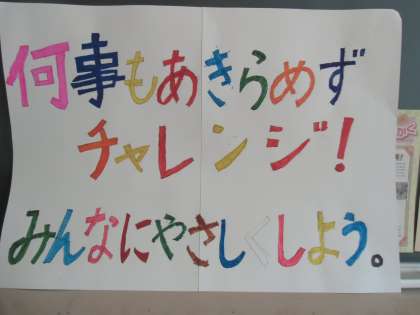 何事もあきらめず
チャレンジ!
みんなにやさしくしよう。